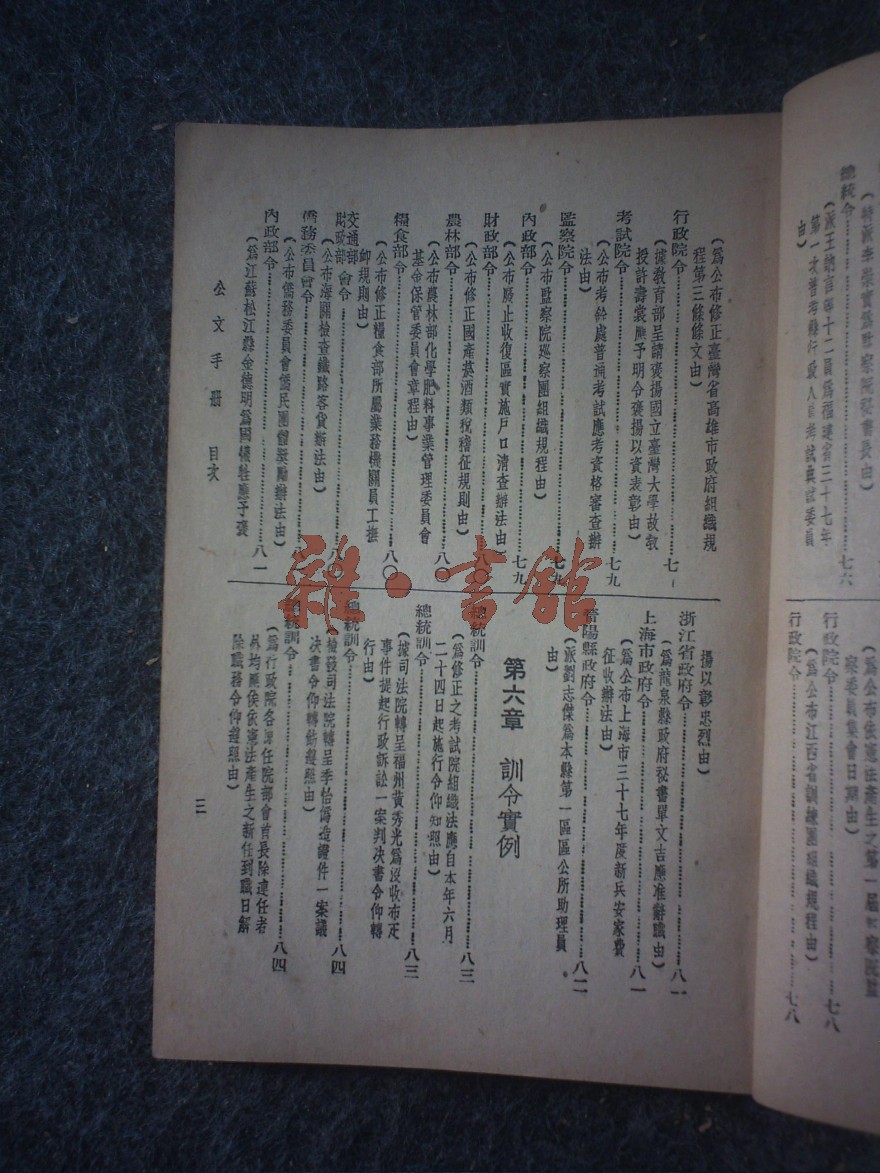 總統令
七六
行政院令
七八
行政院令
（爲公布江西省訓練團組織規程由）
七八
（爲公布修正臺灣省高雄市政府組織規
程第三條條文由）
行政院令
（據敎育部呈請褒揚國立臺灣大學故敎
授許壽裳應予明令褒揚以資表彰由）
考試院令……七九
（公布考銓處普通考試應考資格審查辦
法由）
監察院令……七九
（公布監察院巡察團組織規程由）
內政部令……七九
（公布廢止收復區實施戶口清查辦法由）
財政部令……八〇
（公布修正國產菸酒類稅稽征規則由）
農林部令……八〇
（公布農林部化學肥料事業管理委員會
基金保管委員會章程由）
糧食部令……八〇
（公布修正糧食部所屬業務機關員工撫
卹規則由）
交通部財政部會令……八〇
（公布海關檢查鐵路客貨辦法由）
僑務委員會令
（公布僑務委員會僑民團體獎勵辦法由）
內政部令……八一
（爲江蘇松江縣金德明爲國犧牲應予褒
揚以彰忠烈由）
浙江省政府令……八一
（爲龍泉縣政府秘書單文吉應准辭職由）
上海市政府令……八一
（爲公布上海市三十七年度新兵安家費
征收辦法由）
縣政府令……八二
（派劉志傑爲本縣第一區區公所助理員
由）
第六章　訓令實例
總統訓令……八三
（爲修正之考試院組織法應自本年六月
二十四日起施行令仰知照由）
總統訓令……八三
（據司法院轉呈福州黃秀光爲沒收布疋
事件提起行政訴訟一案判決書令仰轉
行由）
總統訓令……八四
檢發司法院轉呈李恰僞造證件一案議
決書令仰轉飭遵照由）
總統訓令……八四
（爲行政院各原任院部會首長除連任者
外均應俟依憲法產生之新任到職日解
除職務令仰遵照由）
公文手冊　目次
三
雜·書館